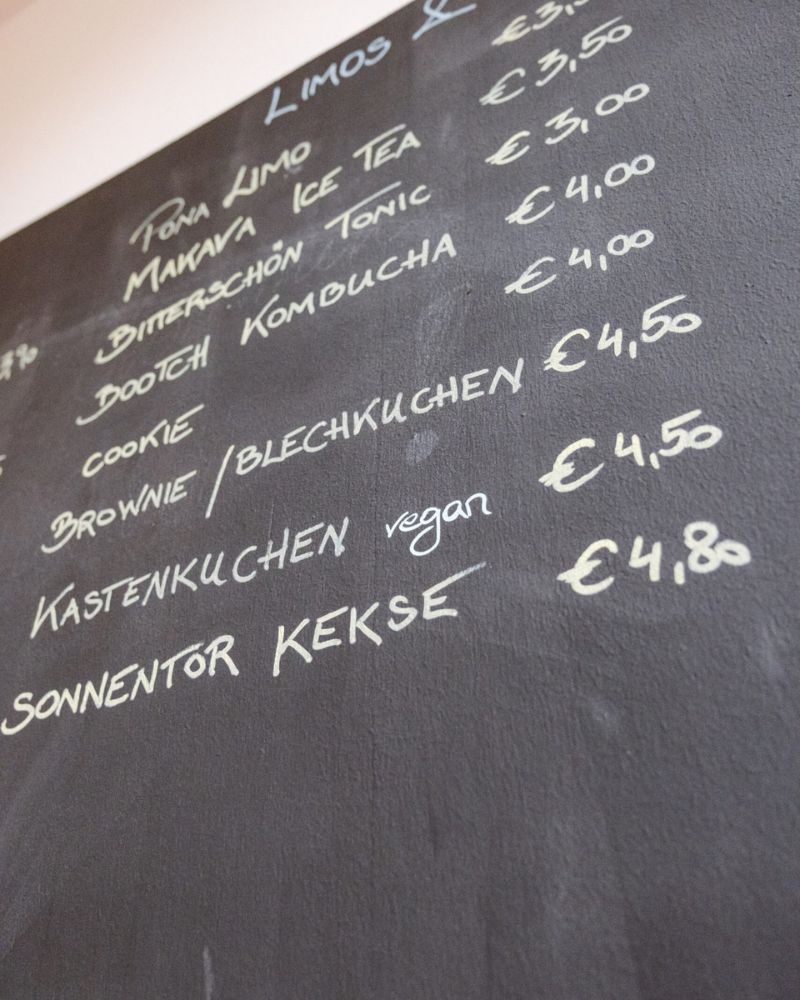 LIMOS &
PONA LIMO €3,5
MAKAVA ICE TEA €3,50
BITTERSCHÖN TONIC €3,00
BOOTCH KOMBUCHA €4,00
COOKIE €4,00
BROWNIE / BLECHKUCHEN €4,50
KASTENKUCHEN vegan €4,50
SONNENTOR KEKSE €4,80